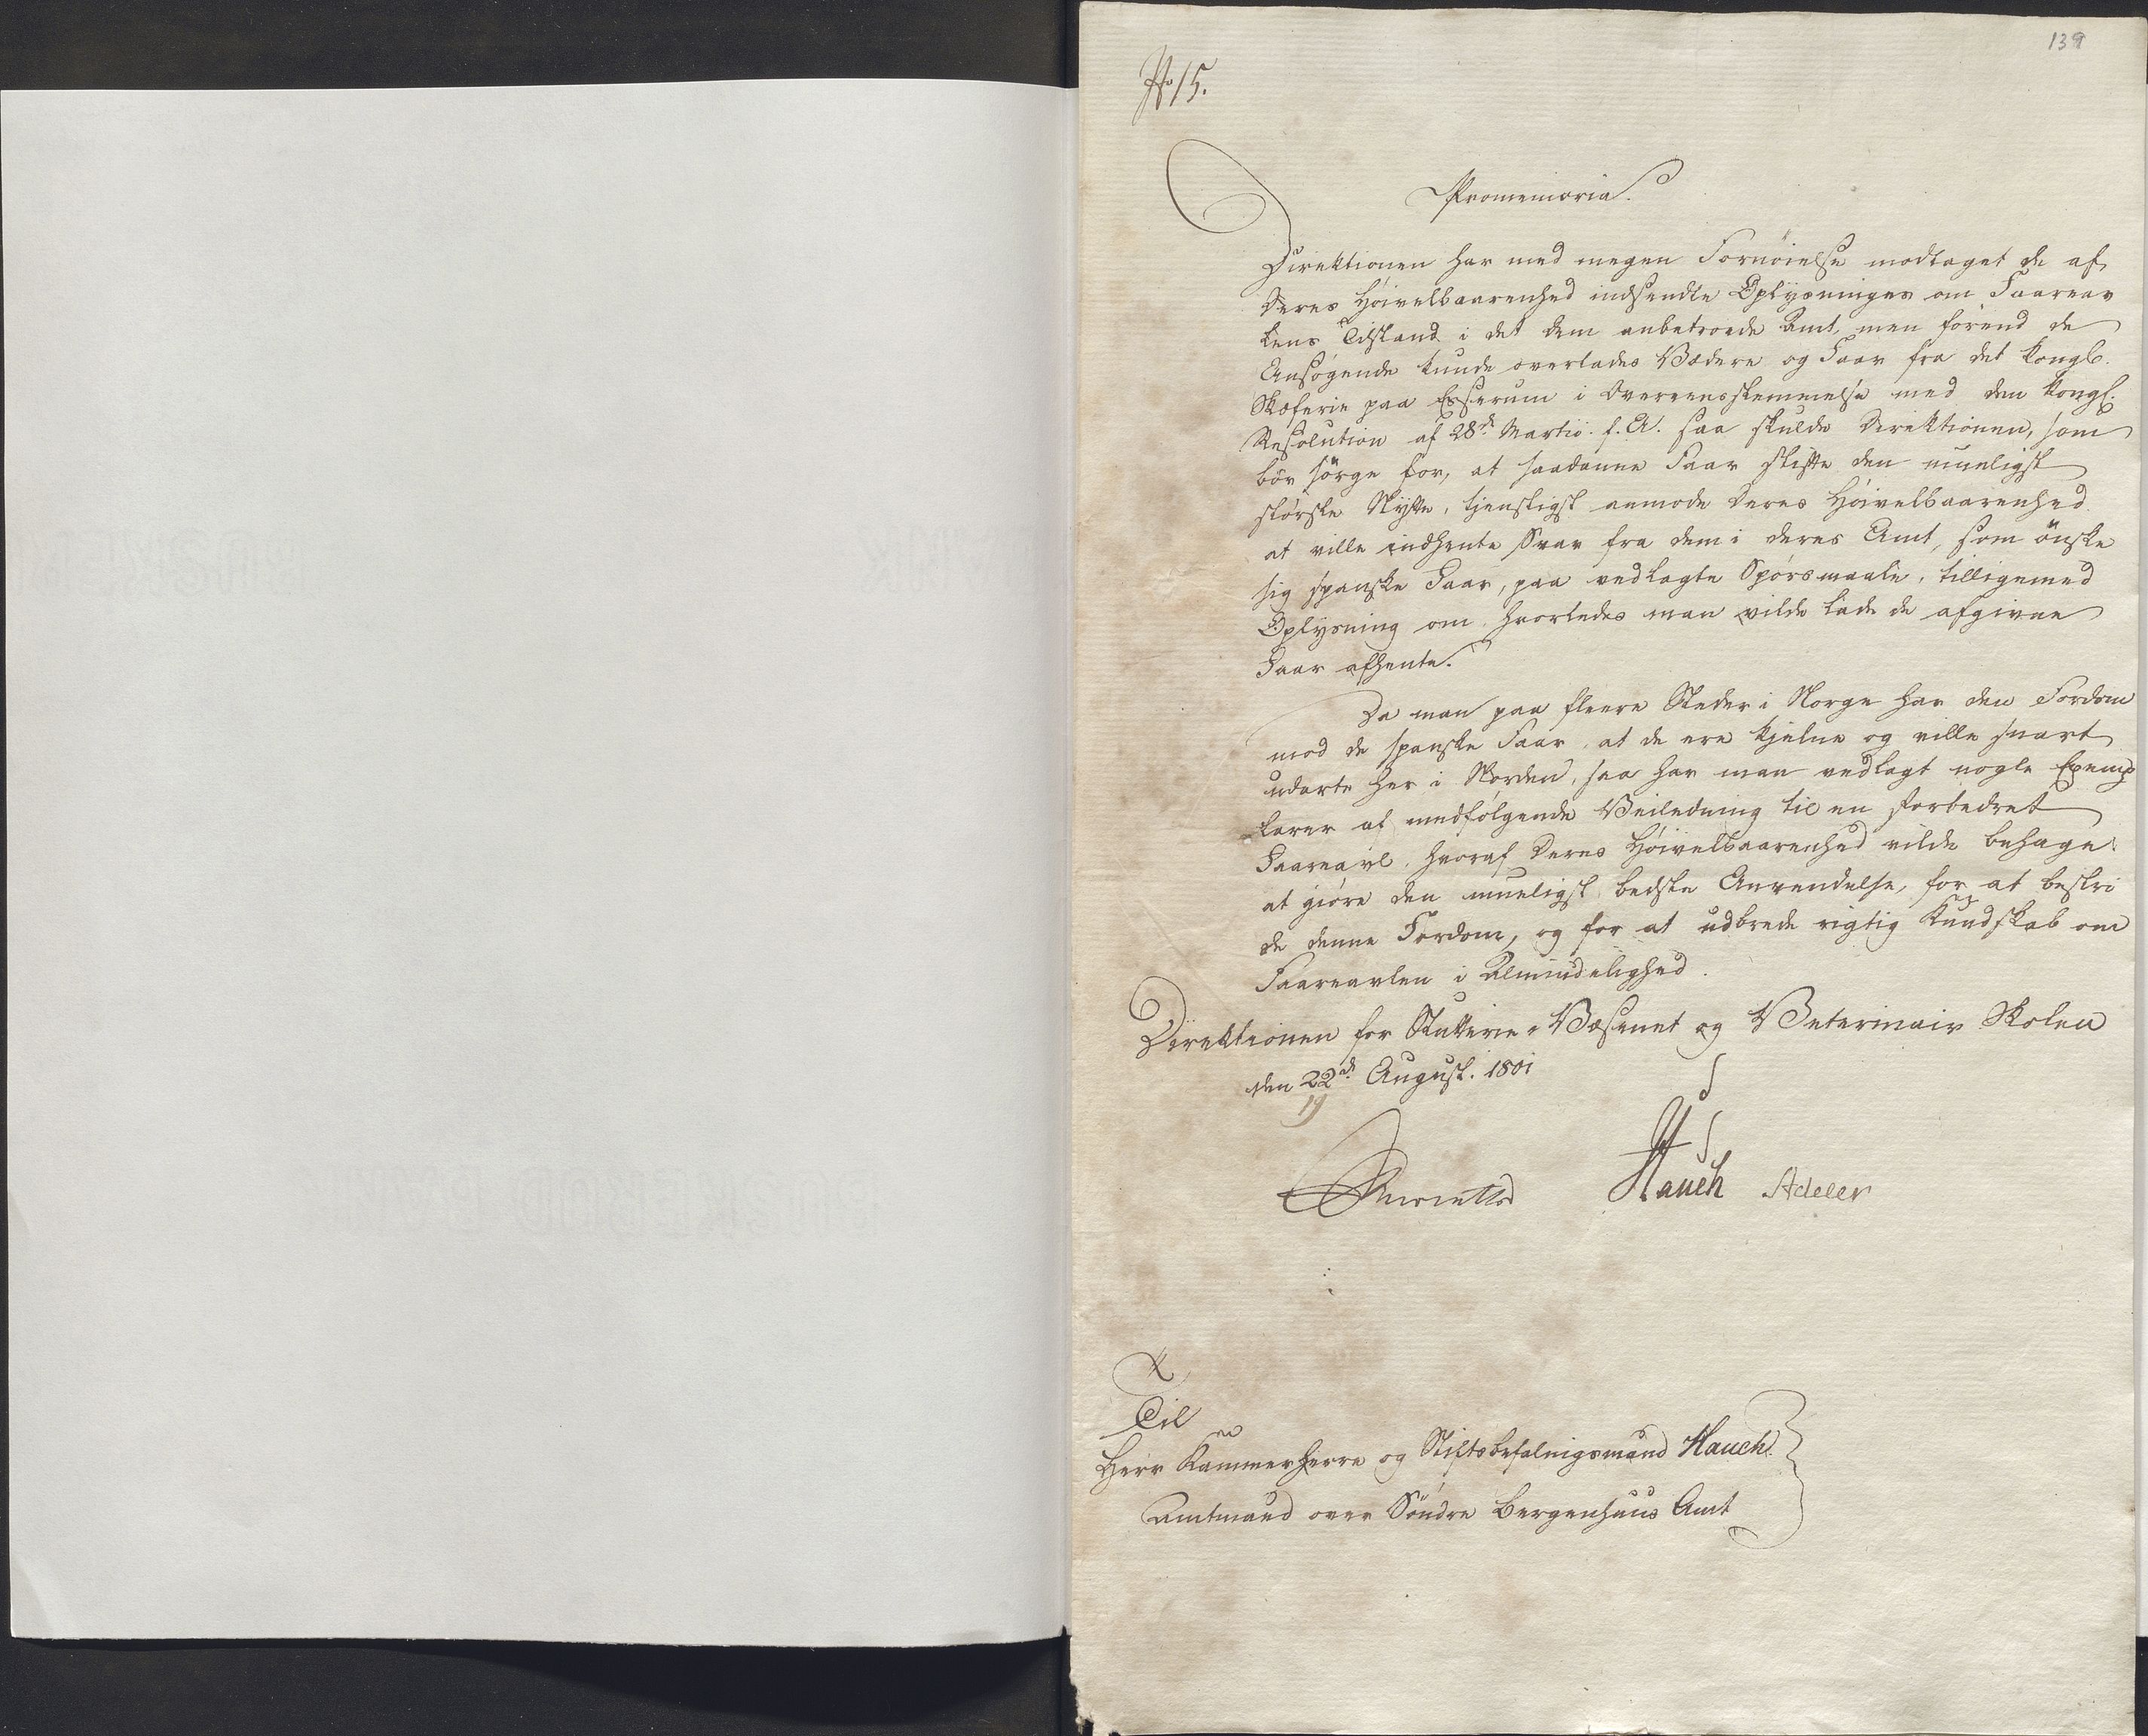 139
No 15.
Promemoria.
Direktionen har med megen Fornöielse modtaget de af
Deres Höivelbaarenhed indsendte Oplysninger om Faareav
lens Tilstand i det dem anbetroede Amt, men förend de
Ansögende kunde overlades Vædere og Faar fra det kongl.
Skæferie paa Esserum i Overeensstemmelse med den kongl.
Resolution af 28de Martii f. A. saa skulde Direktionen, som
bör sörge for, at saadanne Faar stifte den mueligst
störste Nytte, tjenstligst anmode Deres Höivelbaarenhed
at ville indhente Svar fra dem i deres Amt, som önske
sig spanske Faar, paa vedlagte Spörsmaale, tilligemed
Oplysning om hvorledes man vilde lade de afgivne
Faar afhente.
Da man paa fleere Steder i Norge har den Fordom
mod de spanske Faar, at de ere kjelne og ville snart
udarte her i Norden, saa har man vedlagt nogle Exemp
larer af medfölgende Veiledning til en forbedret
Faareavl, hvoraf Deres Höivelbaarenhed vilde behage
at giöre den mueligst bedste Anvendelse, for at bestri
de denne Fordom, og for at udbrede rigtig Kundskab om
Faareavlen i Almindelighed.
Direktionen for Stutterie-Væsenet og Veterinair Skolen
den 22de August. 1801
19
Hauch Adeler
Til
Herr Kammerherre og Stiftsbefalnigsmand Hauch
Amtmand over Söndre Bergenhuus Amt